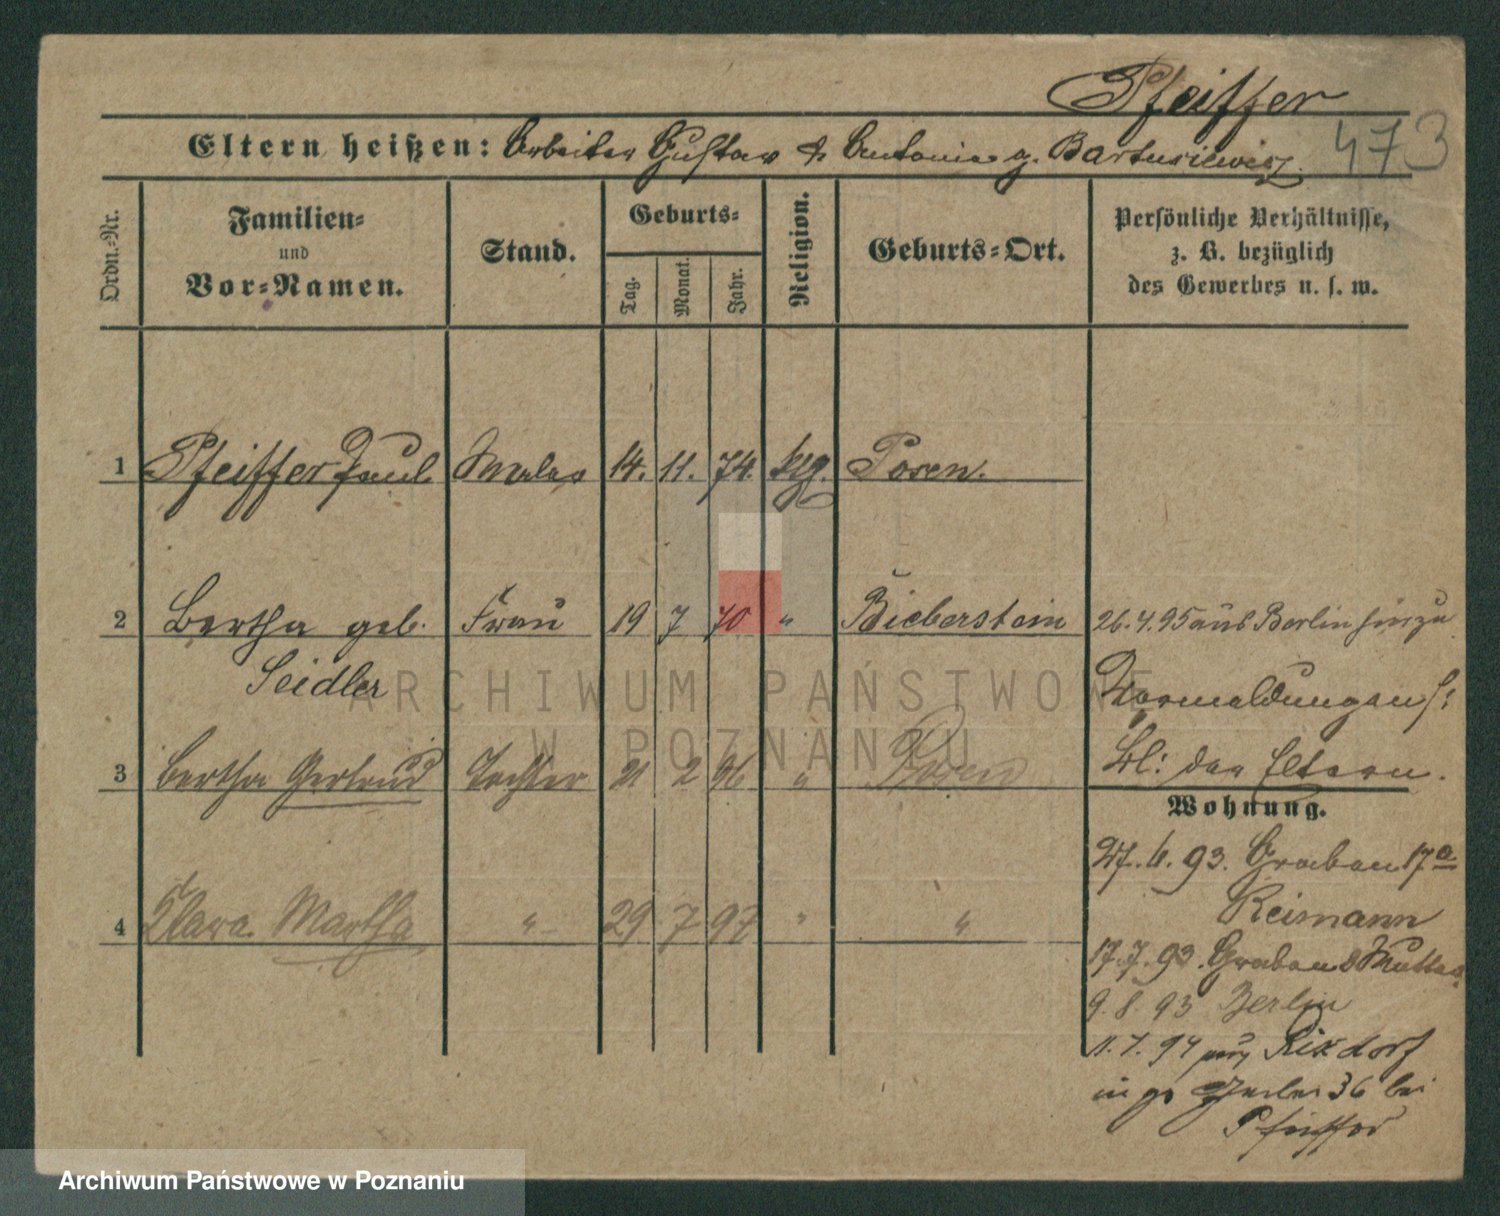 Pfeiffer
473
Eltern heißen: Arbeiter Gustav & Antonie g. Bartusiewicz.
Ordn.-Nr.
Familien-
und
Vor-Namen.
Stand.
Geburts-
Tag.
Monat.
Jahr.
Religion.
Geburts-Ort.
Persönliche Verhältnisse,
z. B. bezüglich
des Gewerbes u. s. w.
1 Pfeiffer Paul Maler 14. 11. 74. ktg. Posen.
2 Bertha geb. Frau 19 7 70 " Bieberstein 26.4.95 aus Berlin hinzu
Seidler
Vormeldungen s:
3 Bertha Gertrud Tochter 21 2 96 " Posen
Bl: der Eltern.
Wohnung.
27. 6. 93. Graben 17a
Reimann
4 Clara Martha " 29 7 97 " "
17.7.93. Graben 8 Mutter
9. 8. 93 Berlin
11. 7. 94 Rixdorf
36 bei
Pfeiffer
ARCHIWUM PAŃSTWOWE
W POZNANIU
Archiwum Państwowe w Poznaniu